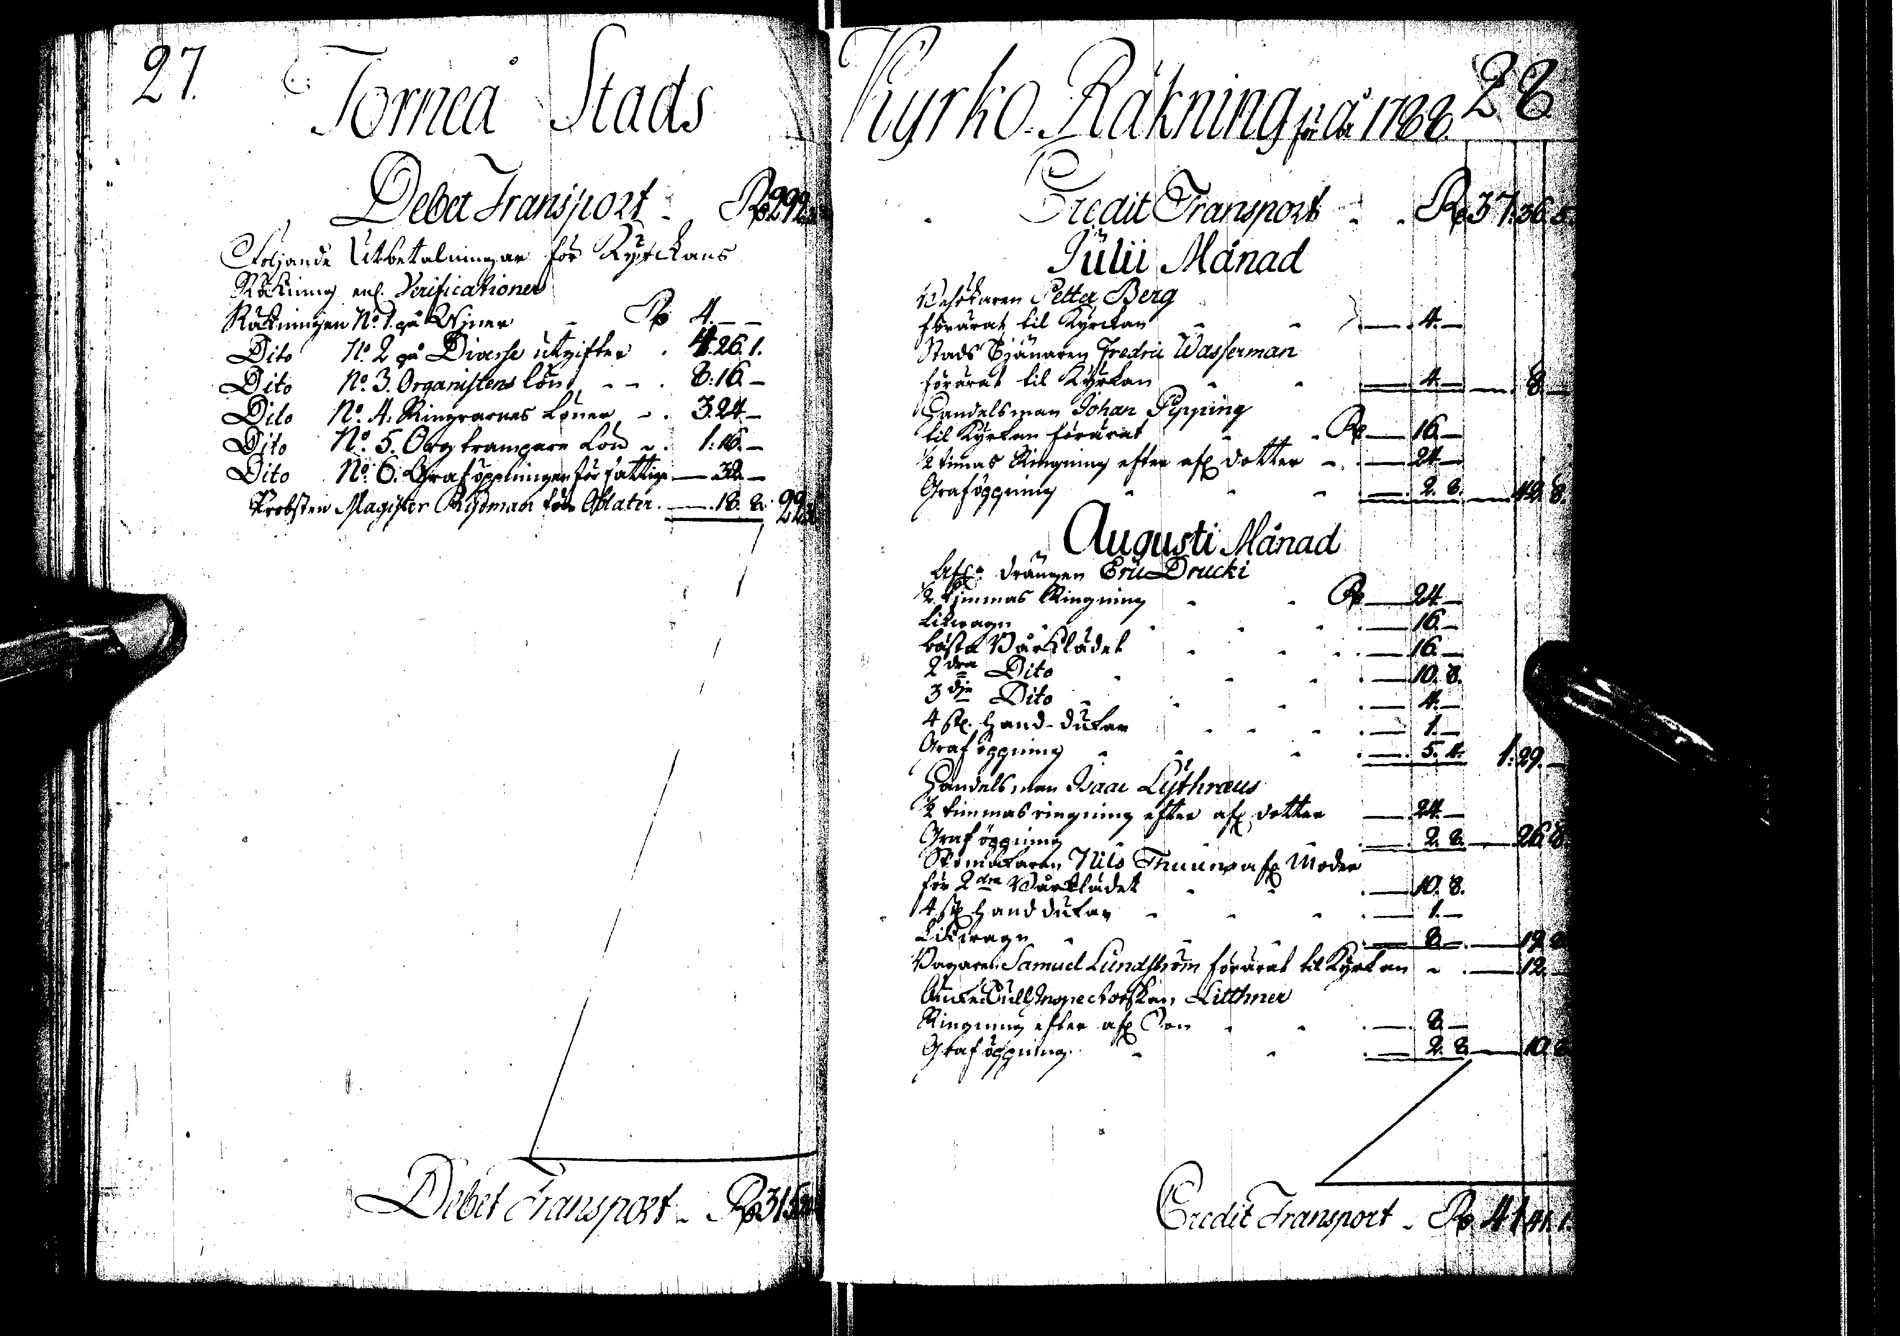 27.
Torneå Stads
Debet Transport - Rp 292
Följande Utbetalningar för Kyrckans
Räkning enl. Verificationer
Räkningen No. 1. på Winer - Rp 4. — —
Dito No. 2 på Diverse utgifter . 4. 26. 1.
Dito No. 3. Organistens lön - - . 8: 16. —
Dito No. 4. Ringrarnes Löner - . 3. 24 —
Dito No. 5. Orgtrampare Lön - . 1: 16. —
Dito No. 6. Graföppningen för fattige — 32. —
Probsten Magister Rydman för Oblater. — 18. 8.
Debet Transport - Rp 315
Kyrko-Räkning för år 1788.
28
Credit Transport - - Rp 37. 36. 8.
Julii Månad
Petter Berg
förärat til Kyrckan — 4. —
Stads Tjänaren Fredric Wasserman
förärat til Kyrkan — 4. — — 8 —
Handelsman Johan Pipping
til Kyrkan förärat - Rp — 16. —
½ timas Ringning efter afl. dotter - . — 24 —
Graföppning — 2. 8. — 42. 8.
Augusti Månad
Afl. drängen Eric Drucki
½ timmas Ringning Rp — 24 —
Likwagn — 16. —
bästa Bårklädet — 16. —
2dra Dito — 10. 8.
3dje Dito — 4. —
4 st. Hand-dukar — 1. —
Graföppning — 5. 4. 1: 29. —
Handelsman Isaac Lythræus
½ timmas ringning efter afl. dotter — 24. —
Graföppning — 2. 8. — 26. 8.
Skomakaren Nils Thuuns afl. Moder
för 2dra Bårklädet — 10. 8.
4 st. Hand dukar — 1. —
Likwagn — 8. — — 19. 8.
Samuel Lundström förärat til Kyrkan - — 12. —
Litthner
Ringning efter afl. Son — 8. —
Graföppning — 2. 8. — 10. 8.
Credit Transport - Rp 41. 41. 1.